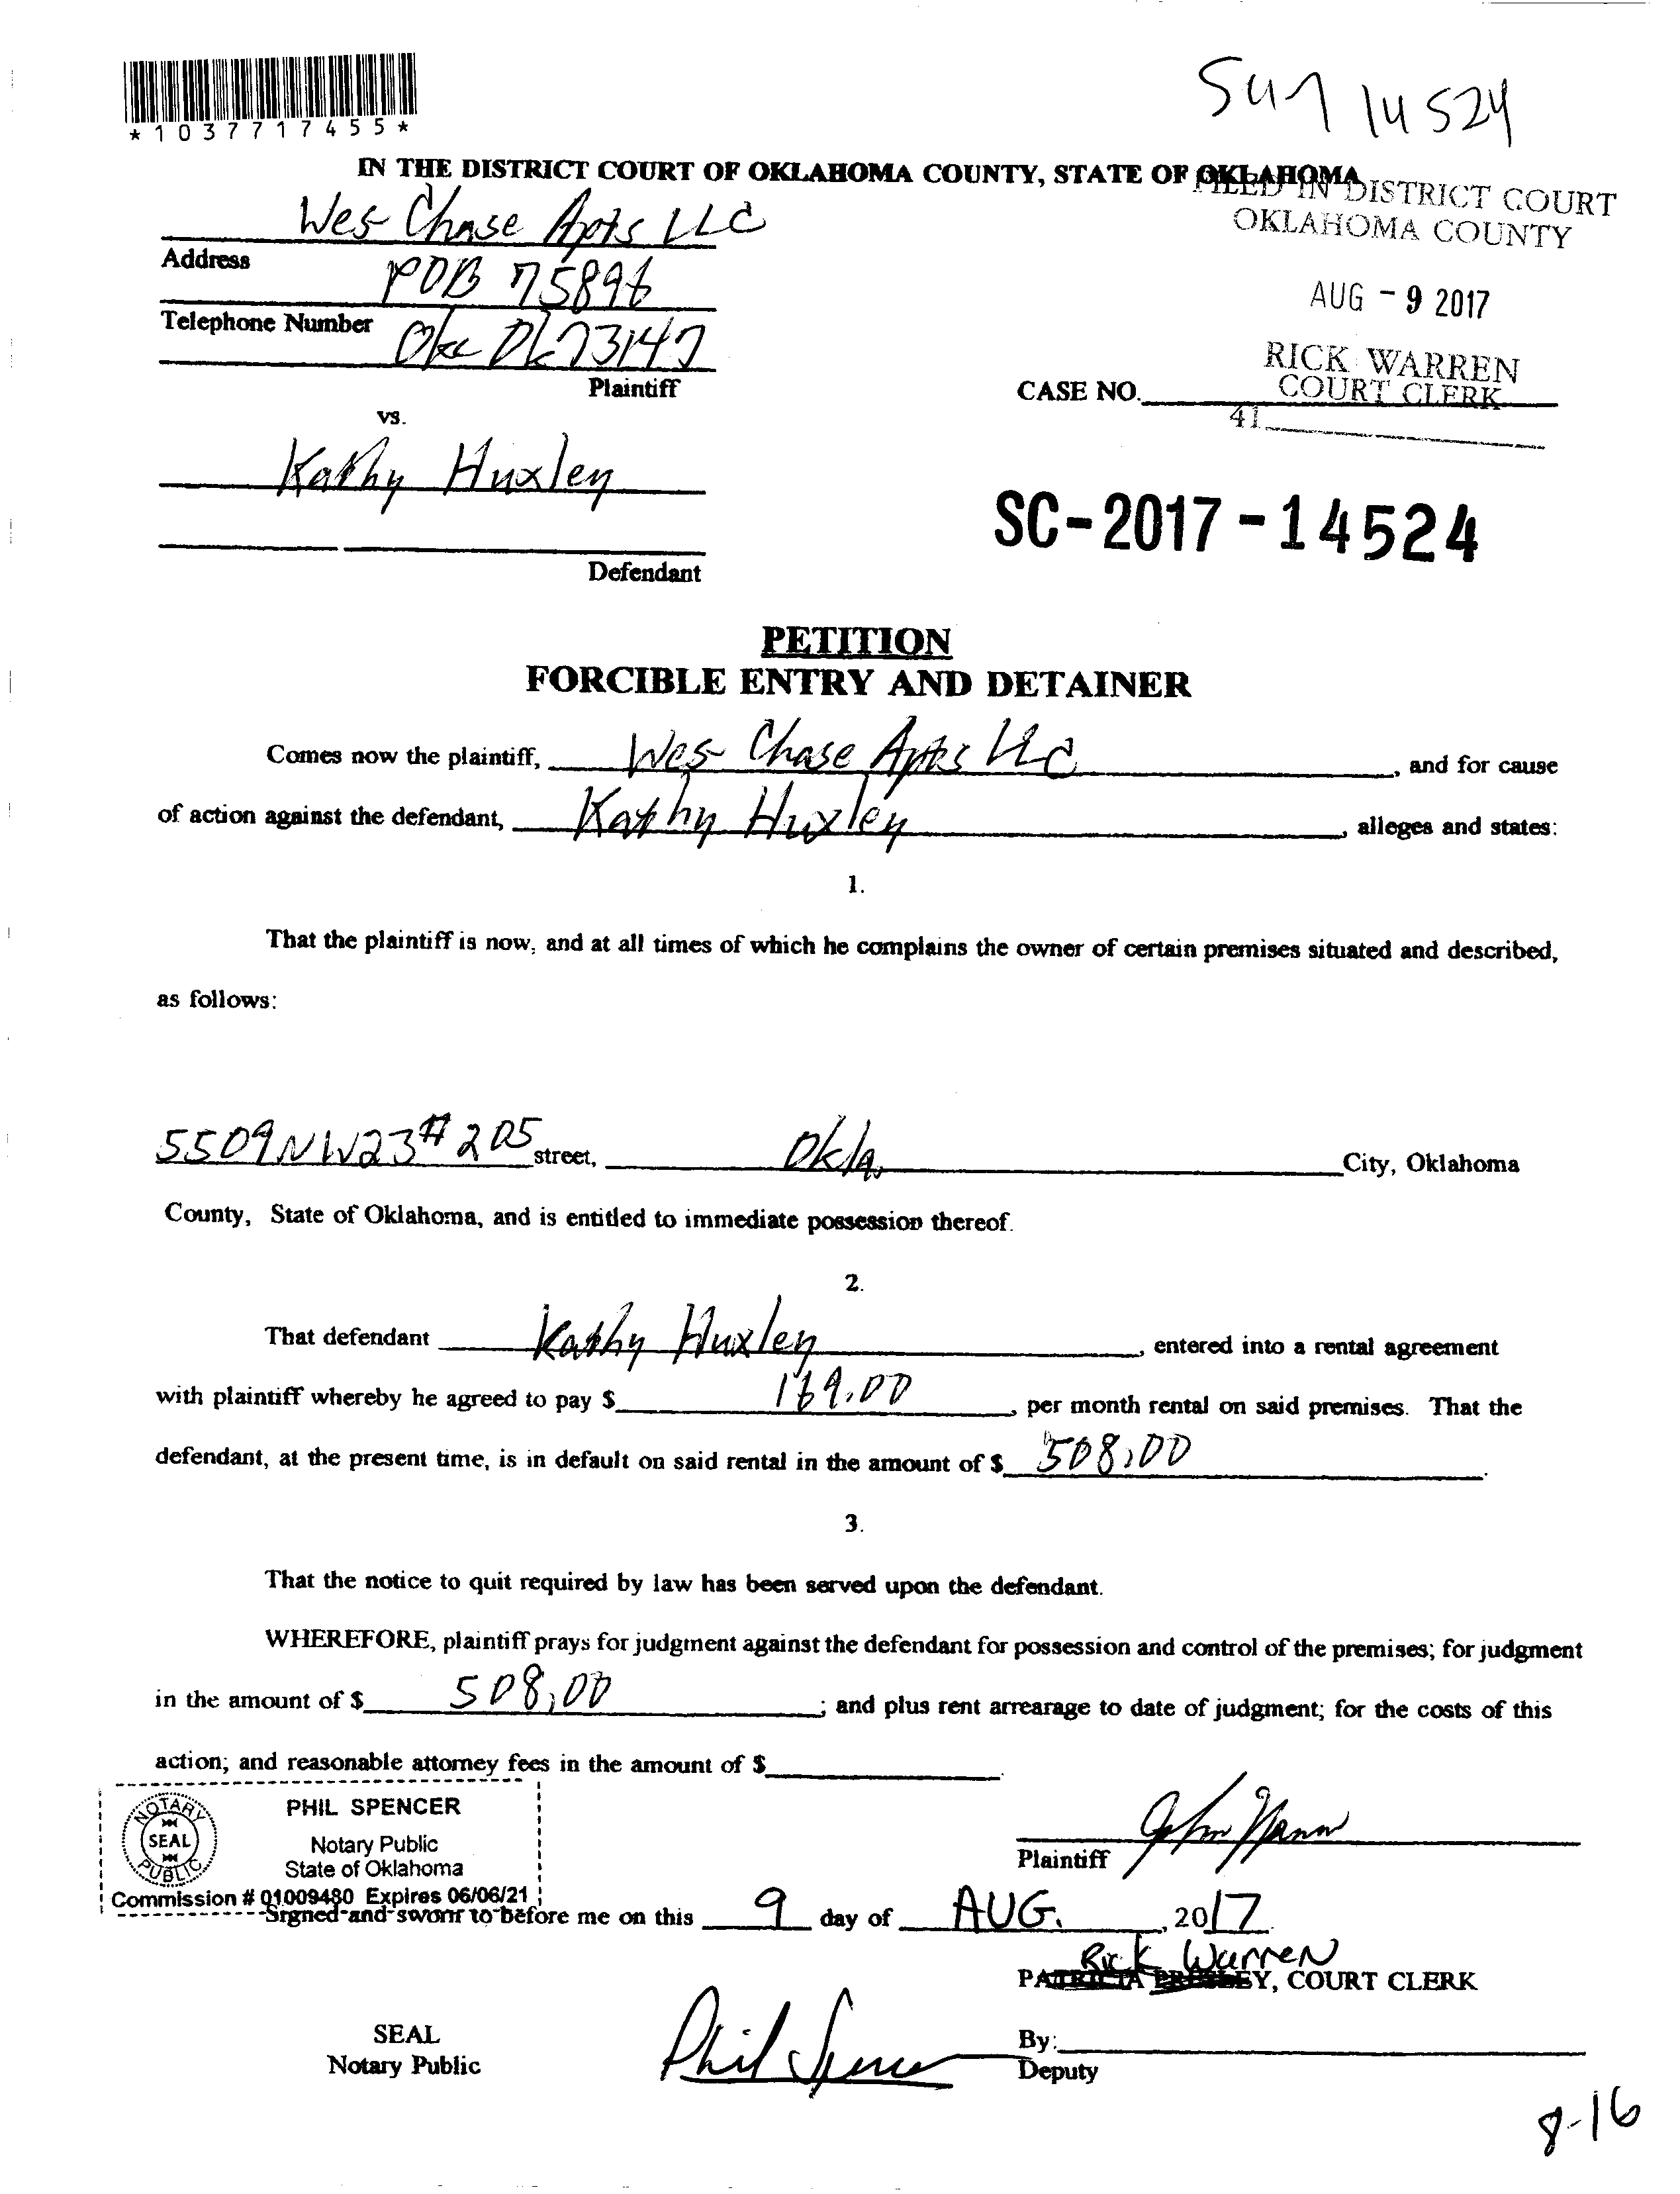 *1037717455*
SC17 14524
IN THE DISTRICT COURT OF OKLAHOMA COUNTY, STATE OF OKLAHOMA
FILED IN DISTRICT COURT
OKLAHOMA COUNTY
Wes Chase Apts LLC
Address
POB 75896
AUG - 9 2017
Telephone Number
Okc Ok 73147
RICK WARREN
COURT CLERK
Plaintiff
CASE NO.
41
vs.
Kathy Huxley
SC-2017-14524
Defendant
PETITION
FORCIBLE ENTRY AND DETAINER
Comes now the plaintiff, Wes Chase Apts LLC, and for cause
of action against the defendant, Kathy Huxley, alleges and states:
1.
That the plaintiff is now, and at all times of which he complains the owner of certain premises situated and described,
as follows:
5509 NW 23 # 205 street, Okla. City, Oklahoma
County, State of Oklahoma, and is entitled to immediate possession thereof.
2.
That defendant Kathy Huxley, entered into a rental agreement
with plaintiff whereby he agreed to pay $ 169.00, per month rental on said premises. That the
defendant, at the present time, is in default on said rental in the amount of $ 508.00.
3.
That the notice to quit required by law has been served upon the defendant.
WHEREFORE, plaintiff prays for judgment against the defendant for possession and control of the premises; for judgment
in the amount of $ 508.00; and plus rent arrearage to date of judgment; for the costs of this
action; and reasonable attorney fees in the amount of $
NOTARY PUBLIC SEAL
PHIL SPENCER
Notary Public
State of Oklahoma
Commission # 01009480 Expires 06/06/21
Plaintiff
Signed and sworn to before me on this 9 day of AUG., 2017.
Rick Warren
PATRICIA PRESLEY, COURT CLERK
SEAL
Notary Public
Phil Spencer
By:
Deputy
8-16